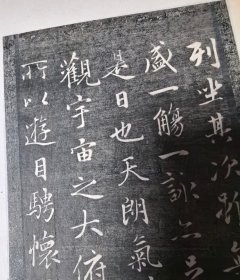 列坐其次雖無
盛一觴一詠亦足
是日也天朗氣
觀宇宙之大俯
所以遊目騁懷